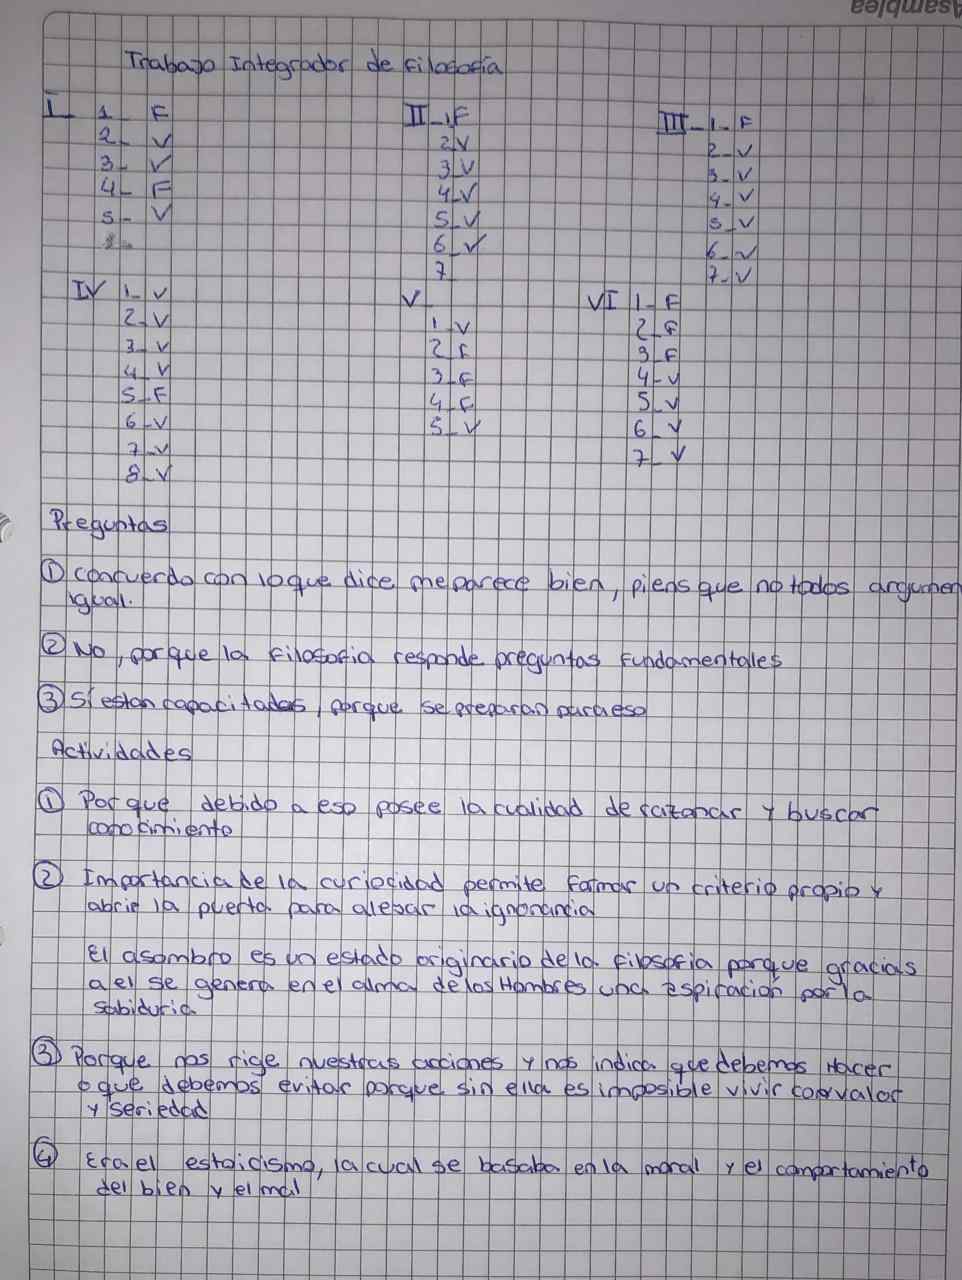 Asamblea
Trabajo Integrador de filosofía
I 1_ F
2_ V
3_ V
4_ F
5_ V
II_1F
2V
3V
4_V
5_V
6_V
7_
III_1_F
2_V
3_V
4_V
5_V
6_V
7_V
IV 1_ V
2_V
3_V
4_V
5_F
6_V
7_V
8_V
V_
1_V
2_F
3_F
4_F
5_V
VI 1_F
2_F
3_F
4_V
5_V
6_V
7_V
Preguntas
① concuerdo con loque dice meparece bien, piens que no todos argumen
igual.
② No, porque la filosofia responde preguntas fundamentales
③ Sí estan capacitadas, porque se preparan para eso
Actividades
① Por que debido a eso posee la cualidad de razonar y buscar
conocimiento
② Importancia de la curiocidad permite formar un criterio propio y
abrir la puerta para alejar la ignorancia
El asombro es un estado originario de la filosofia porque gracias
a el se genera en el alma de los Hombres una espiración por la
sabiduria
③ Porque nos rige nuestras acciones y nos indica que debemos Hacer
o que debemos evitar porque sin ella es imposible vivir con valor
y seriedad
④ Era el estoicismo, la cual se basaba en la moral y el comportamiento
del bien y el mal